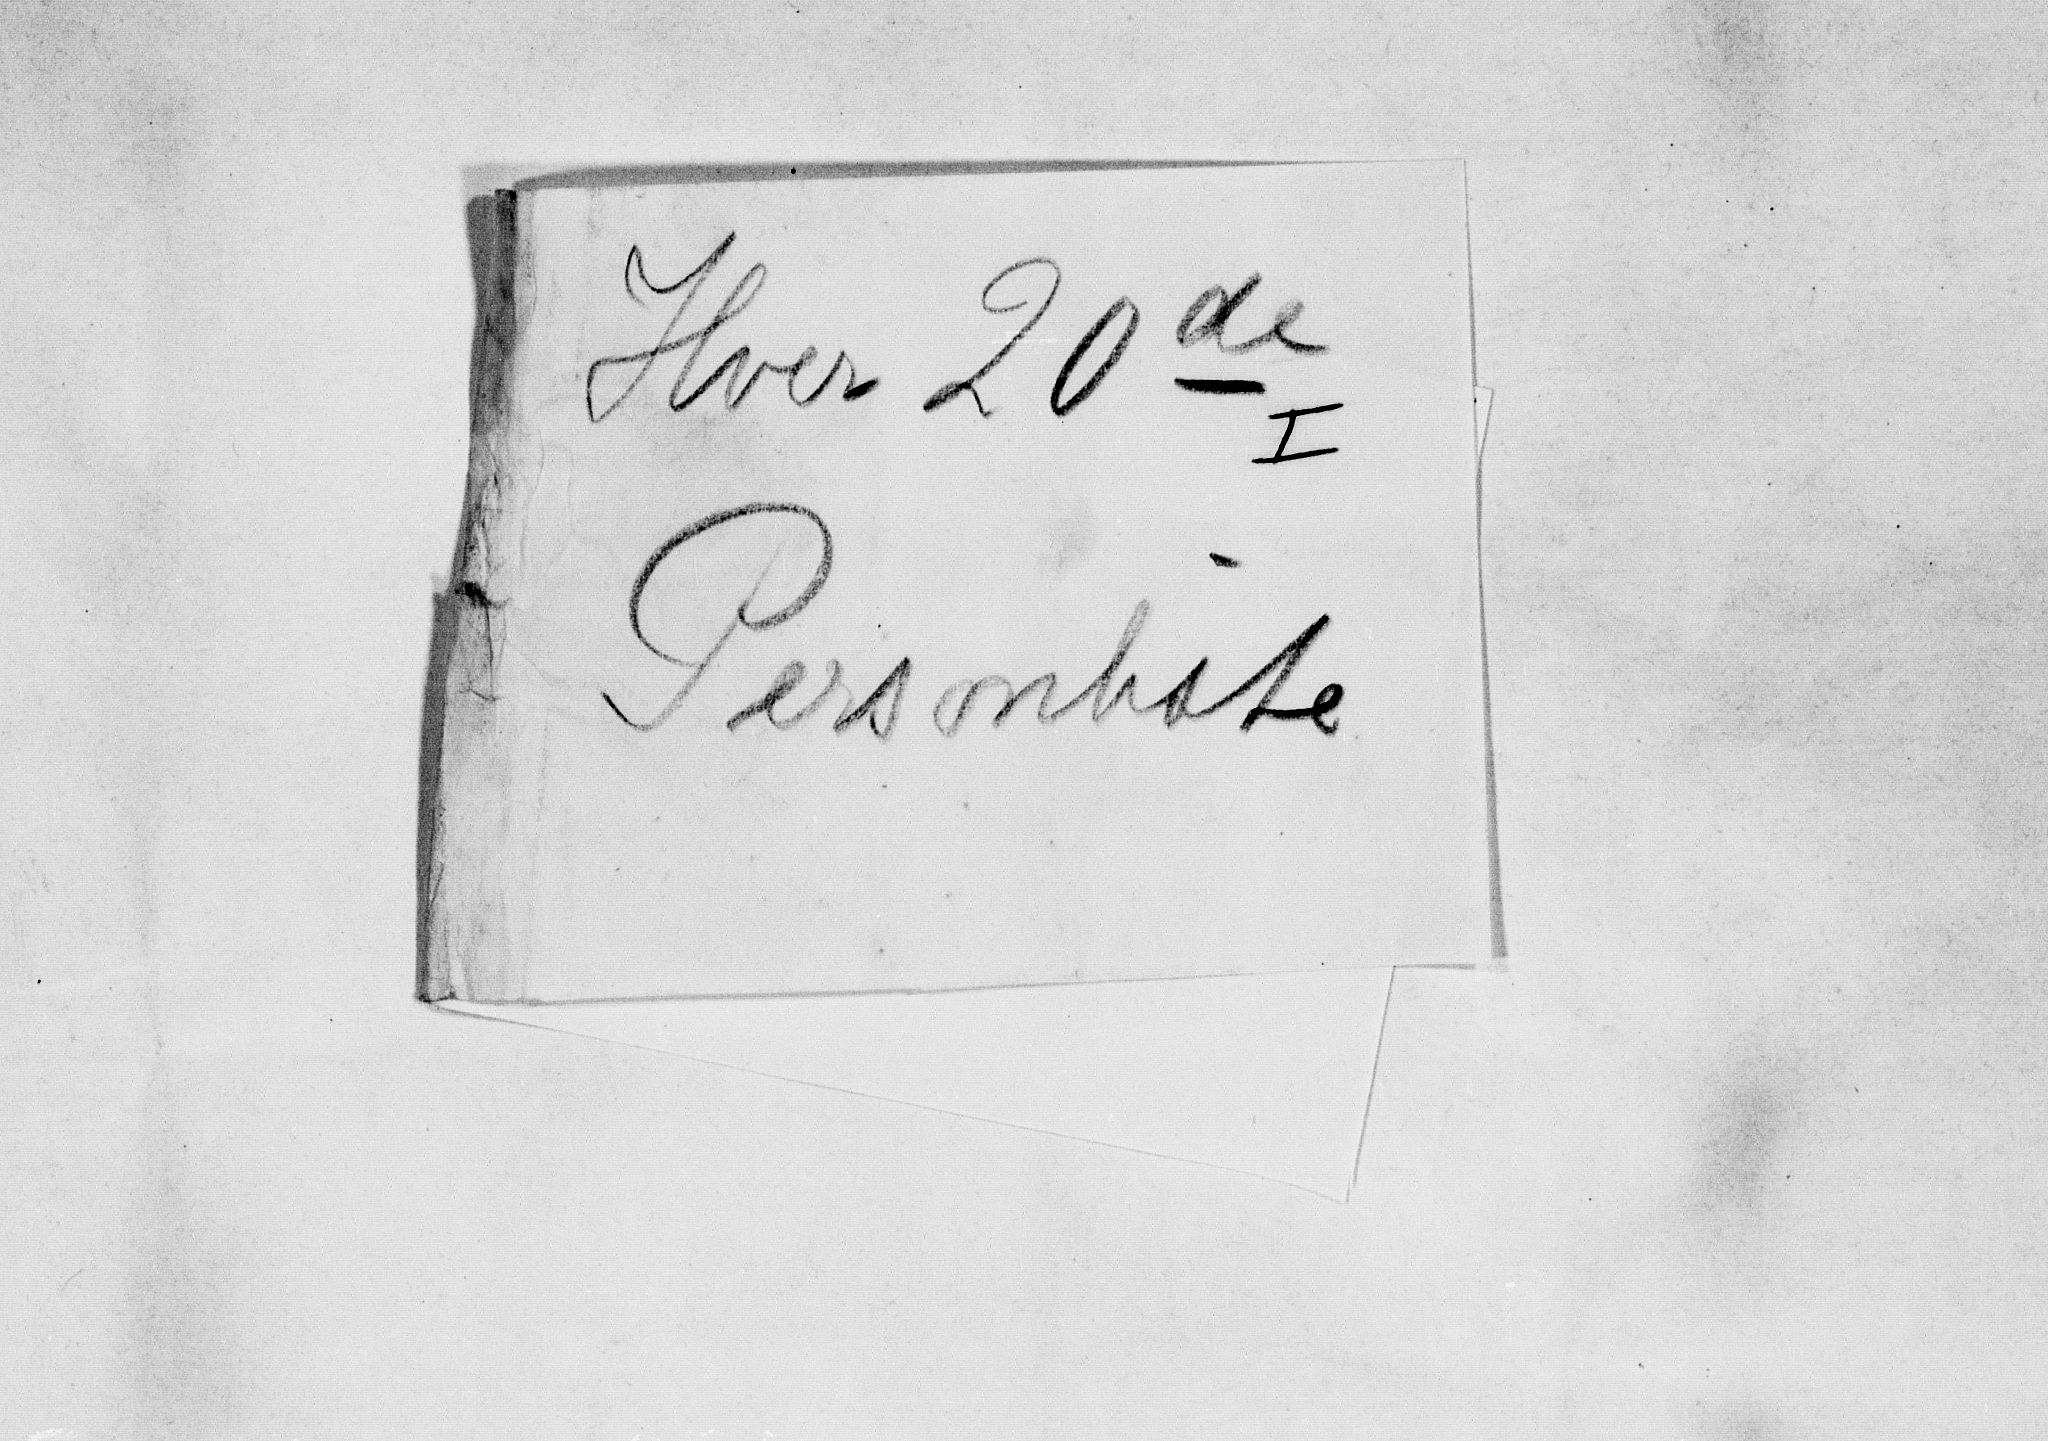 Hver 20de
I
Personliste